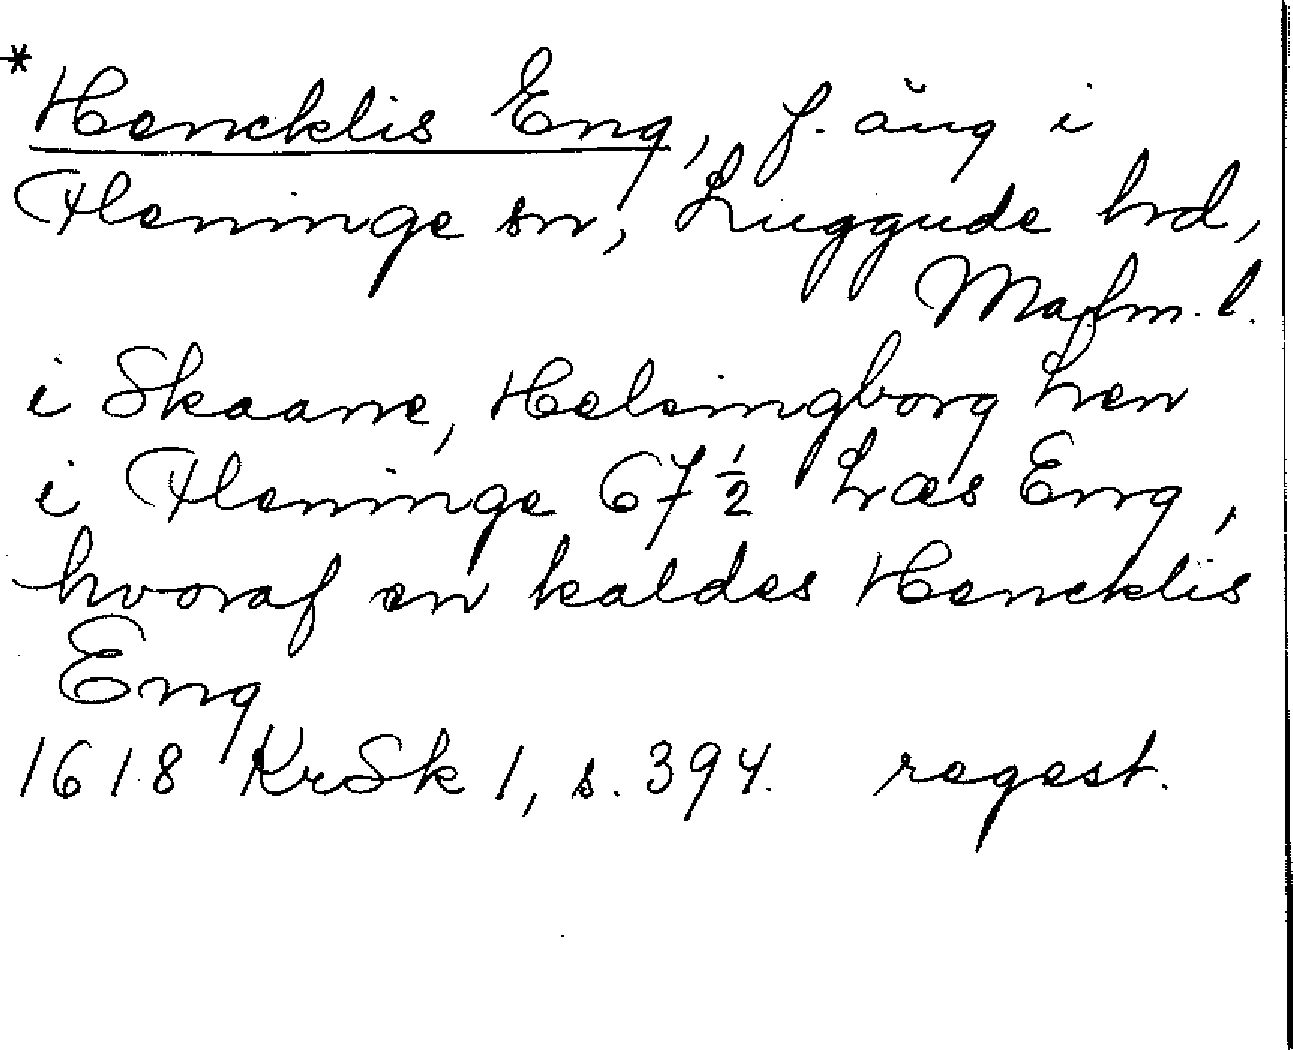 * Hencklis Eng, f. äng i
Fleninge sn, Luggude hrd,
Malm. l.
i Skaane, Helsingborg Len
i Fleninge 67 1/2 Læs Eng,
hvoraf en kaldes Hencklis
Eng
1618 KrSk 1, s. 394. regest.